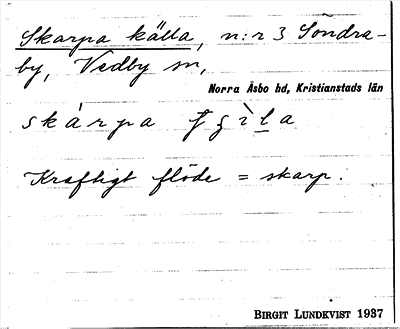 Skarpa källa, n:r 3 Söndra-
by, Vedby sn,
Norra Åsbo hd, Kristianstads län
skàrpa
Kraftigt flöde = skarp.
BIRGIT LUNDKVIST 1937